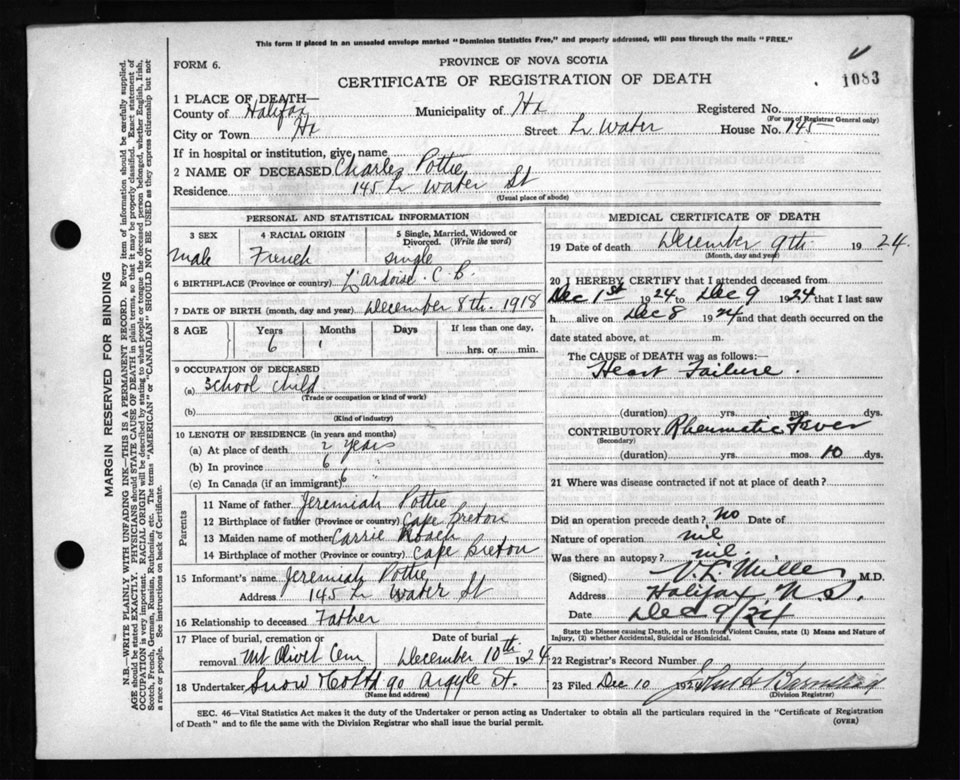 This form if placed in an unsealed envelope marked "Dominion Statistics Free," and properly addressed, will pass through the mails "FREE."
FORM 6.
PROVINCE OF NOVA SCOTIA
CERTIFICATE OF REGISTRATION OF DEATH
1083
1 PLACE OF DEATH—
County of Halifax Municipality of Hx Registered No.
(For use of Registrar General only)
City or Town Hx Street L Water House No. 145
If in hospital or institution, give name
2 NAME OF DECEASED Charles Pottie
Residence 145 L Water St
(Usual place of abode)
PERSONAL AND STATISTICAL INFORMATION
3 SEX 4 RACIAL ORIGIN 5 Single, Married, Widowed or Divorced. (Write the word)
Male French Single
6 BIRTHPLACE (Province or country) L'Ardoise C. B.
7 DATE OF BIRTH (month, day and year) December 8th. 1918
8 AGE Years Months Days If less than one day,
6 hrs. or min.
9 OCCUPATION OF DECEASED
(a) School child
(Trade or occupation or kind of work)
(b)
(Kind of industry)
10 LENGTH OF RESIDENCE (in years and months)
(a) At place of death 2 years
(b) In province 6 "
(c) In Canada (if an immigrant) 6 "
Parents
11 Name of father Jeremiah Pottie
12 Birthplace of father (Province or country) Cape Breton
13 Maiden name of mother Carrie Roach
14 Birthplace of mother (Province or country) Cape Breton
15 Informant's name Jeremiah Pottie
Address 145 L Water St
16 Relationship to deceased Father
17 Place of burial, cremation or removal Mt Olivet Cem Date of burial December 10th 1924
18 Undertaker Snow & Co Ltd 90 Argyle St.
(Name and address)
MEDICAL CERTIFICATE OF DEATH
19 Date of death December 9th 1924.
(Month, day and year)
20 I HEREBY CERTIFY that I attended deceased from
Dec 1st 1924 to Dec 9 1924 that I last saw
h alive on Dec 8 1924 and that death occurred on
date stated above, at m.
The CAUSE OF DEATH was as follows:—
Heart Failure.
(duration) yrs. mos. dys.
CONTRIBUTORY Rheumatic Fever
(Secondary)
(duration) yrs. mos. 10 dys.
21 Where was disease contracted if not at place of death?
Did an operation precede death? No Date of
Nature of operation nil
Was there an autopsy? nil.
(Signed) V. L. Miller M.D.
Address Halifax, N.S.
Date Dec 9/24
State the Disease causing Death, or in death from Violent Causes, state (1) Means and Nature of
Injury, (2) whether Accidental, Suicidal or Homicidal.
22 Registrar's Record Number
23 Filed Dec 10 192
(Division Registrar)
SEC. 46—Vital Statistics Act makes it the duty of the Undertaker or person acting as Undertaker to obtain all the particulars required in the "Certificate of Registration
of Death" and to file the same with the Division Registrar who shall issue the burial permit. (OVER)
MARGIN RESERVED FOR BINDING
N.B.—WRITE PLAINLY WITH UNFADING INK—THIS IS A PERMANENT RECORD. Every item of information should be carefully supplied.
AGE should be stated EXACTLY. PHYSICIANS should STATE CAUSE OF DEATH in plain terms, so that it may be properly classified. Exact statement of
OCCUPATION is very important. RACIAL ORIGIN will be described by stating to what people or tongue the deceased person belonged, whether English, Irish,
Scotch, French, German, Russian, Ruthenian, etc. The terms "AMERICAN" or "CANADIAN" SHOULD NOT BE USED as they express citizenship but not
a race or people. See instructions on back of Certificate.